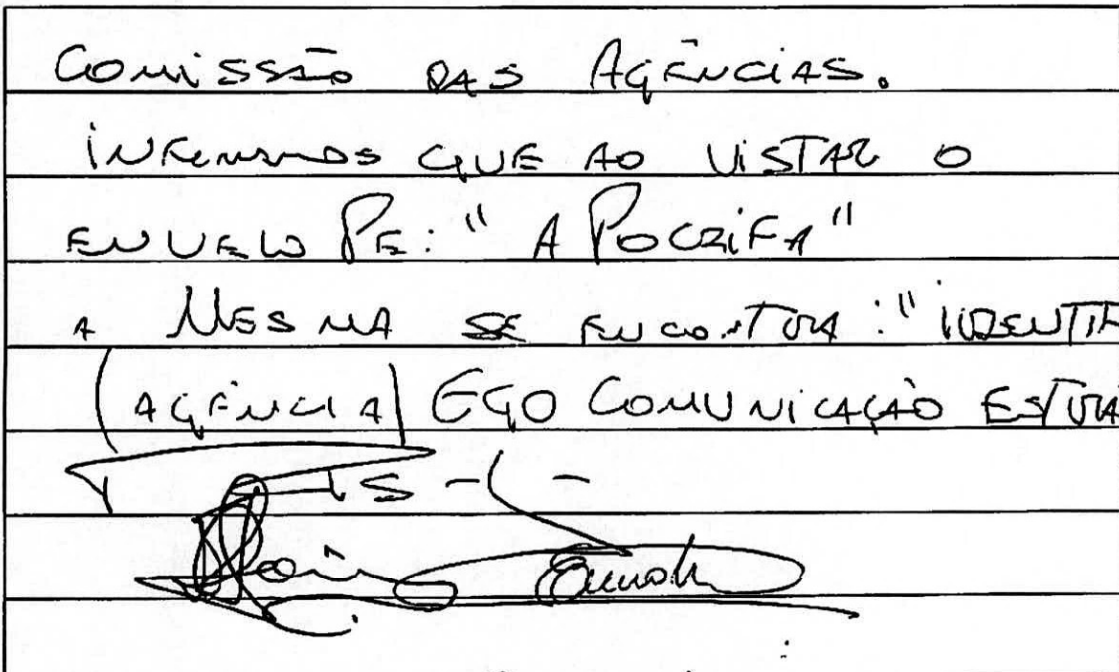 COMISSÃO DAS AGÊNCIAS.
QUE AO VISTAR O
PE: "APOCRIFA"
A MESMA SE ENCONTRA: "IDENTIF
(AGÊNCIA) EGO COMUNICAÇÃO ESTRA